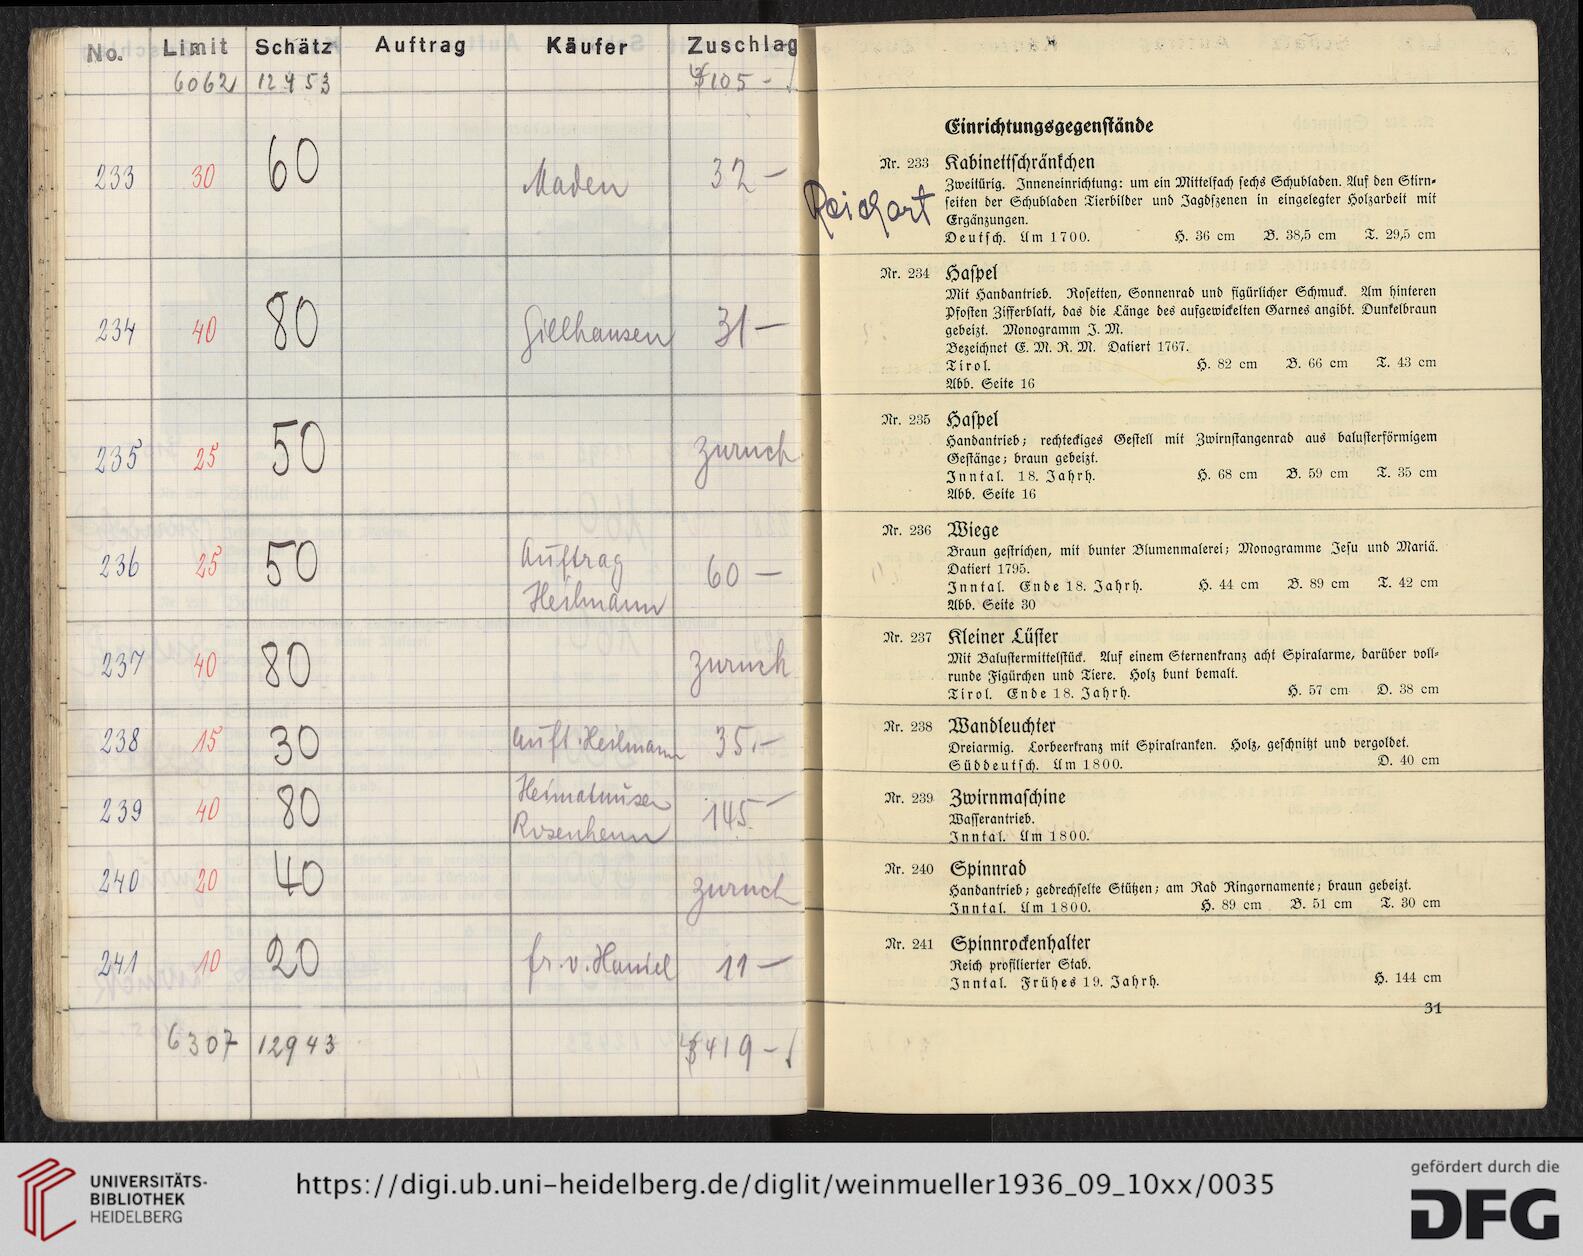 No. Limit Schätz Auftrag Käufer Zuschlag
6062 12453 105 –
233 30 60 Maden 32 –
234 40 80 Gillhausen 31 –
235 25 50 zuruck
236 25 50 Auftrag Heilmann 60 –
237 40 80 zuruck
238 15 30 Auft. Heilmann 35.–
239 40 80 Heimatmuseu Rosenheim 145 –
240 20 40 zuruck
241 10 20 fr. v. Haniel 11 –
6307 12943 419 –
Einrichtungsgegenstände
Nr. 233 Kabinettschränkchen
Reichart
Zweitürig. Inneneinrichtung: um ein Mittelfach sechs Schubladen. Auf den Stirn-
seiten der Schubladen Tierbilder und Jagdszenen in eingelegter Holzarbeit mit
Ergänzungen.
Deutsch. Um 1700. H. 36 cm B. 38,5 cm T. 29,5 cm
Nr. 234 Haspel
Mit Handantrieb. Rosetten, Sonnenrad und figürlicher Schmuck. Am hinteren
Pfosten Zifferblatt, das die Länge des aufgewickelten Garnes angibt. Dunkelbraun
gebeizt. Monogramm J. M.
Bezeichnet E. M. R. M. Datiert 1767.
Tirol. H. 82 cm B. 66 cm T. 43 cm
Abb. Seite 16
Nr. 235 Haspel
Handantrieb; rechteckiges Gestell mit Zwirnstangenrad aus balusterförmigem
Gestänge; braun gebeizt.
Inntal. 18. Jahrh. H. 68 cm B. 59 cm T. 35 cm
Abb. Seite 16
Nr. 236 Wiege
Braun gestrichen, mit bunter Blumenmalerei; Monogramme Jesu und Mariä.
Datiert 1795.
Inntal. Ende 18. Jahrh. H. 44 cm B. 89 cm T. 42 cm
Abb. Seite 30
Nr. 237 Kleiner Lüster
Mit Balustermittelstück. Auf einem Sternenkranz acht Spiralarme, darüber voll-
runde Figürchen und Tiere. Holz bunt bemalt.
Tirol. Ende 18. Jahrh. H. 57 cm D. 38 cm
Nr. 238 Wandleuchter
Dreiarmig. Lorbeerkranz mit Spiralranken. Holz, geschnitzt und vergoldet.
Süddeutsch. Um 1800. D. 40 cm
Nr. 239 Zwirnmaschine
Wasserantrieb.
Inntal. Um 1800.
Nr. 240 Spinnrad
Handantrieb; gedrechselte Stützen; am Rad Ringornamente; braun gebeizt.
Inntal. Um 1800. H. 89 cm B. 51 cm T. 30 cm
Nr. 241 Spinnrockenhalter
Reich profilierter Stab.
Inntal. Frühes 19. Jahrh. H. 144 cm
31
UNIVERSITÄTS-
BIBLIOTHEK
HEIDELBERG
https://digi.ub.uni-heidelberg.de/diglit/weinmueller1936_09_10xx/0035
gefördert durch die
DFG